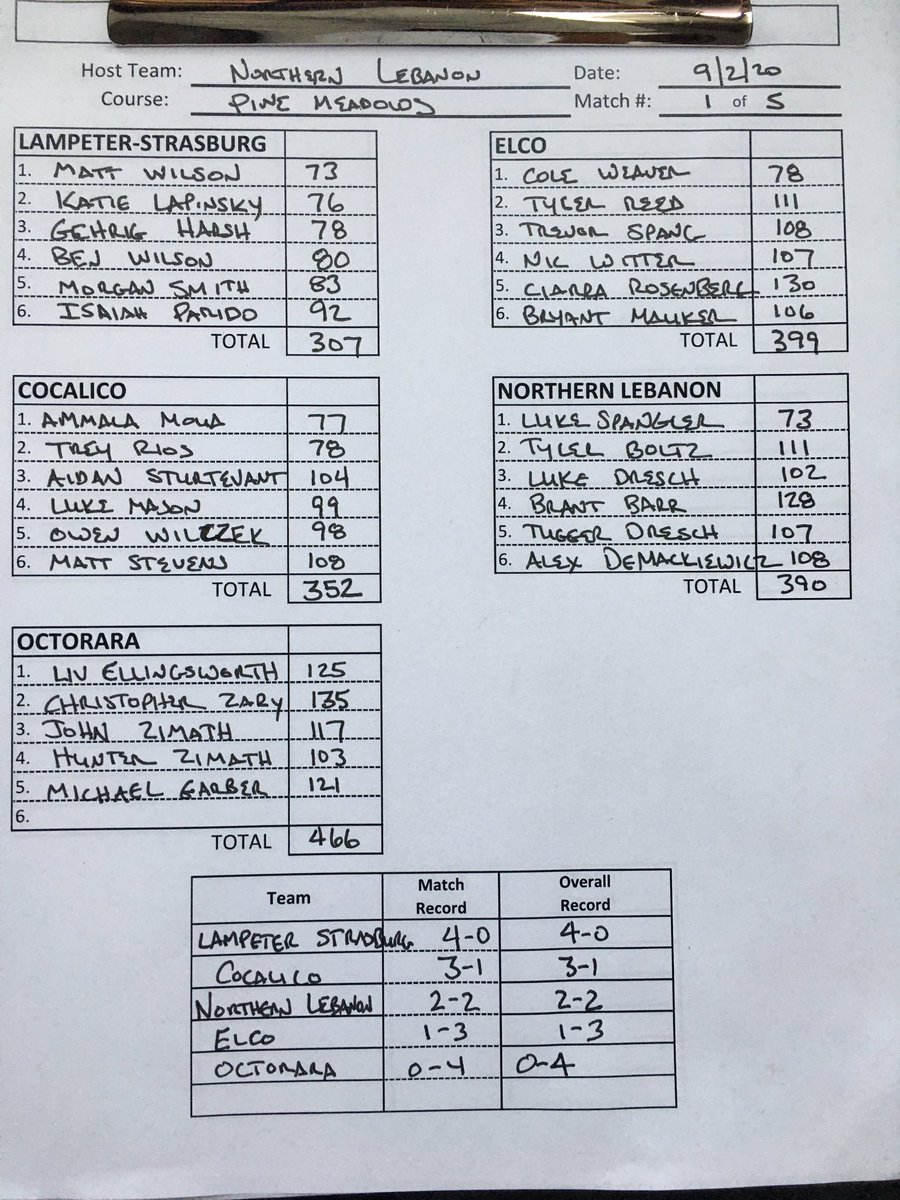 Host Team: NORTHERN LEBANON Date: 9/2/20
Course: PINE MEADOWS Match #: 1 of 5
LAMPETER-STRASBURG
1. MATT WILSON 73
2. KATIE LAPINSKY 76
3. GEHRIG HARSH 78
4. BEN WILSON 80
5. MORGAN SMITH 83
6. ISAIAH PARIDO 92
TOTAL 307
ELCO
1. COLE WEAVER 78
2. TYLER REED 111
3. TREVOR SPANG 108
4. NIC WITTER 107
5. CIARRA ROSENBERG 130
6. BRYANT MAUKER 106
TOTAL 399
COCALICO
1. AMMALA MOUA 77
2. TREY RIOS 78
3. AIDAN STURTEVANT 104
4. LUKE MASON 99
5. OWEN WILCZEK 98
6. MATT STEVENS 108
TOTAL 352
NORTHERN LEBANON
1. LUKE SPANGLER 73
2. TYLER BOLTZ 111
3. LUKE DRESCH 102
4. BRANT BARR 128
5. TUGGER DRESCH 107
6. ALEX DEMACKIEWICZ 108
TOTAL 390
OCTORARA
1. LIV ELLINGSWORTH 125
2. CHRISTOPHER ZARY 135
3. JOHN ZIMATH 117
4. HUNTER ZIMATH 103
5. MICHAEL GARBER 121
6.
TOTAL 466
Team Match Record Overall Record
LAMPETER STRASBURG 4-0 4-0
COCALICO 3-1 3-1
NORTHERN LEBANON 2-2 2-2
ELCO 1-3 1-3
OCTORARA 0-4 0-4